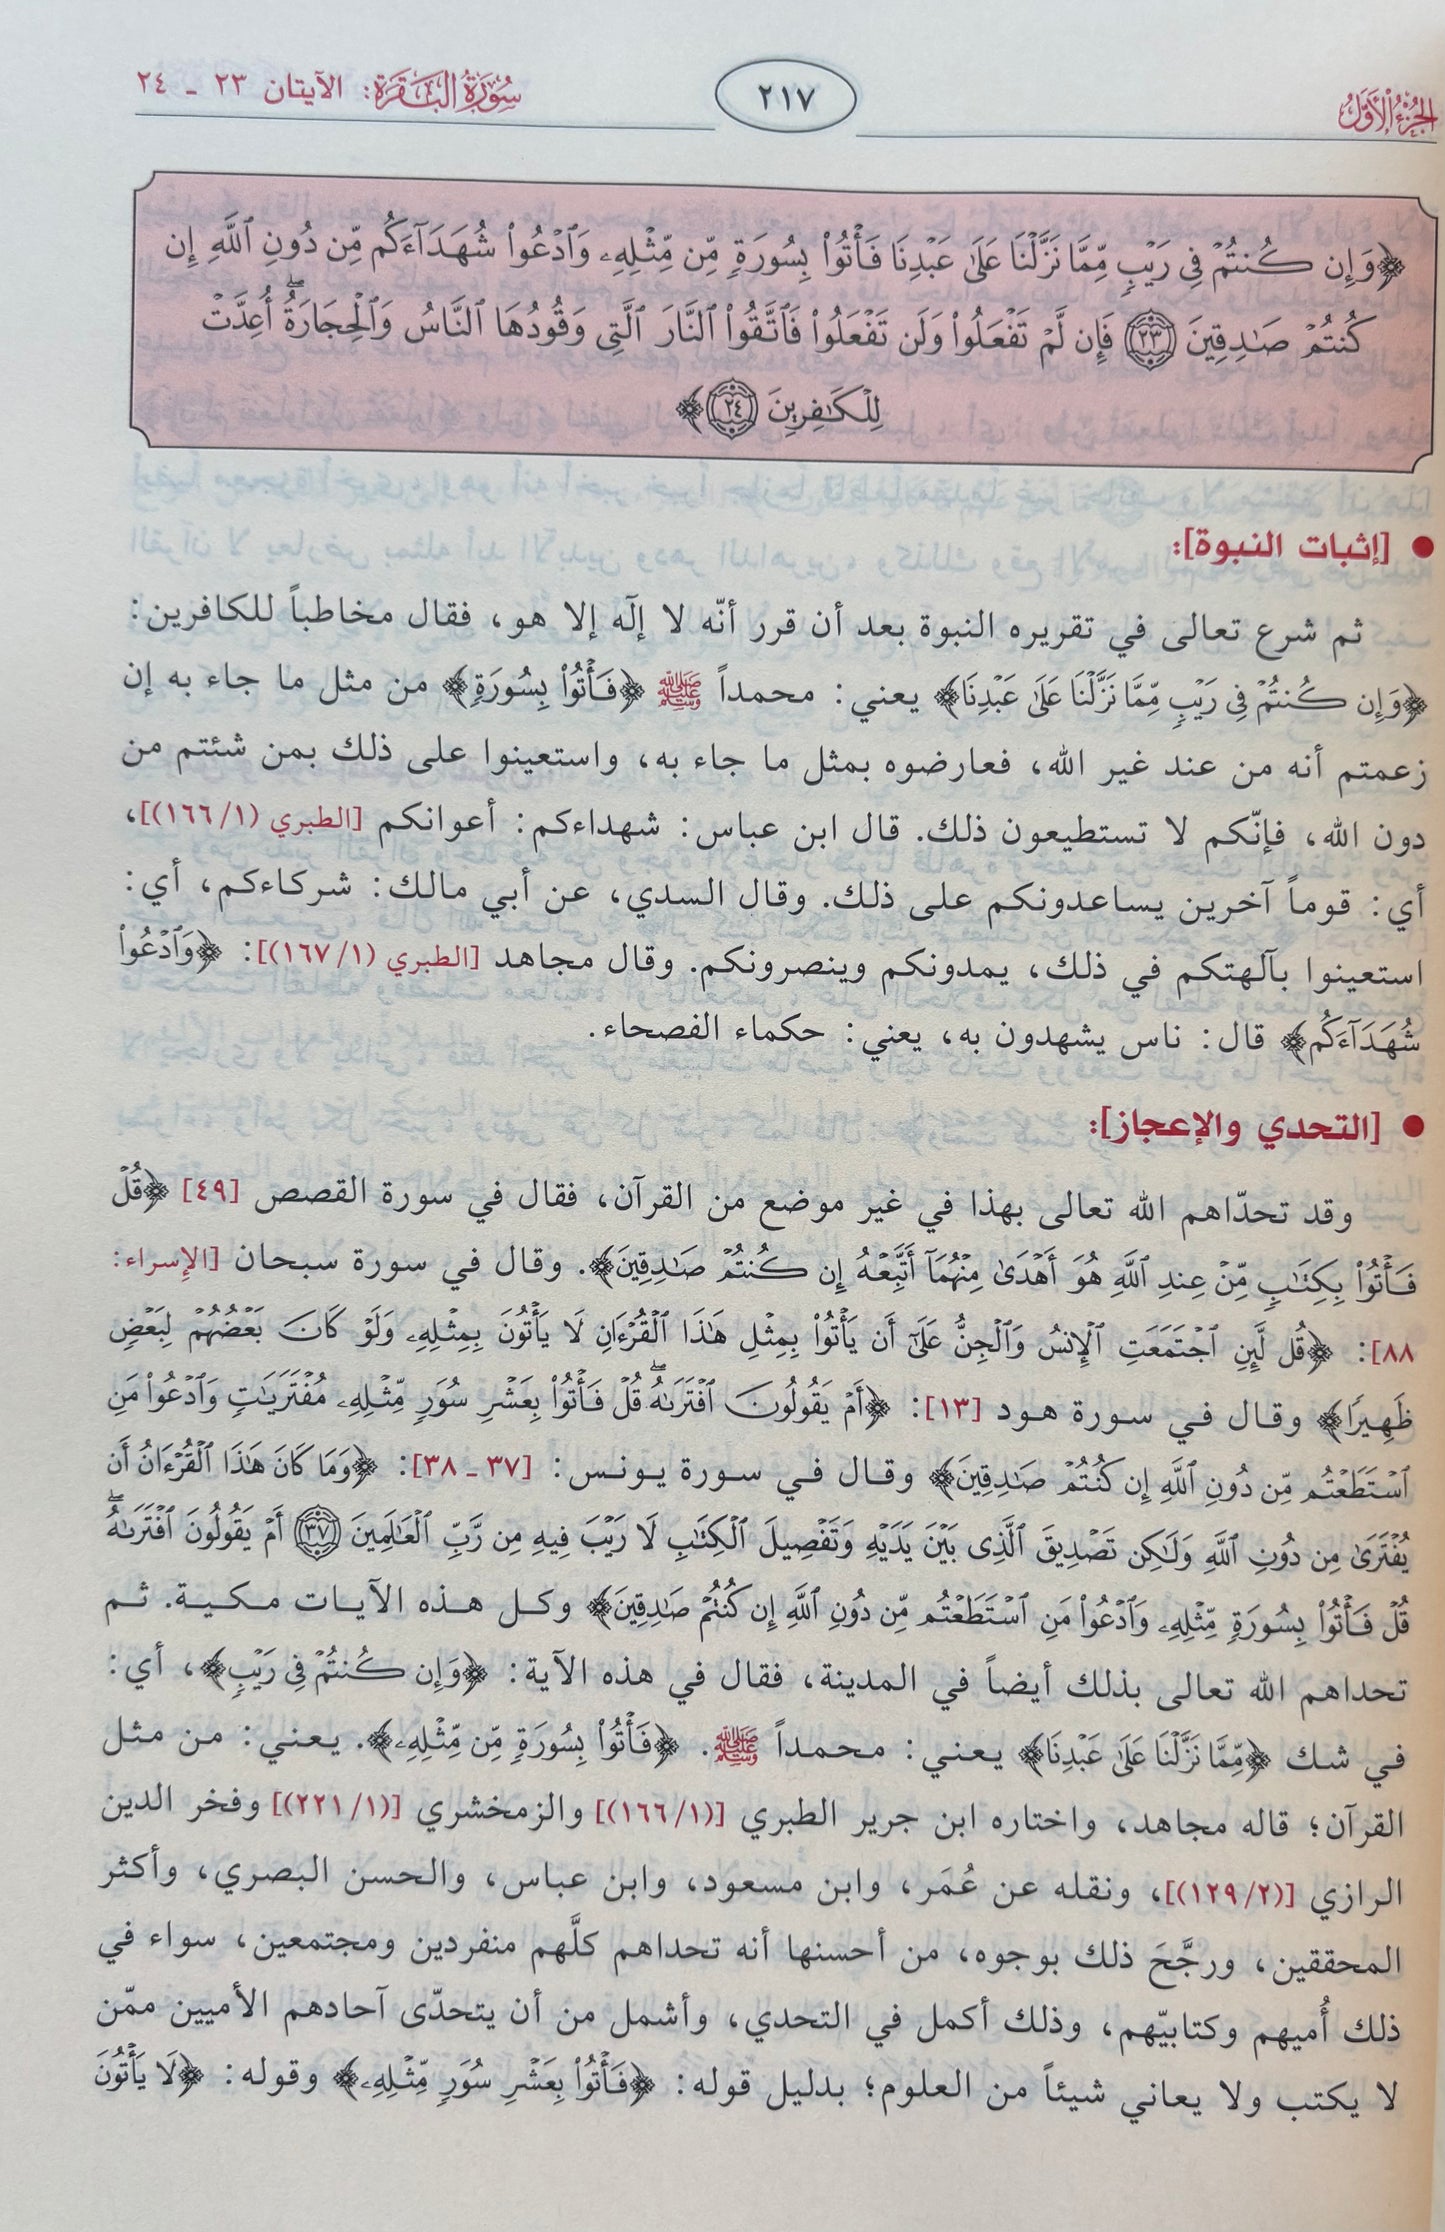 الجزء الأول
٢١٧
سورة البقرة: الآيتان ٢٣ ـ ٢٤
﴿وَإِن كُنتُمْ فِى رَيْبٍ مِّمَّا نَزَّلْنَا عَلَىٰ عَبْدِنَا فَأْتُوا۟ بِسُورَةٍ مِّن مِّثْلِهِۦ وَٱدْعُوا۟ شُهَدَآءَكُم مِّن دُونِ ٱللَّهِ إِن
كُنتُمْ صَـٰدِقِينَ ٢٣ فَإِن لَّمْ تَفْعَلُوا۟ وَلَن تَفْعَلُوا۟ فَٱتَّقُوا۟ ٱلنَّارَ ٱلَّتِى وَقُودُهَا ٱلنَّاسُ وَٱلْحِجَارَةُ ۖ أُعِدَّتْ
لِلْكَـٰفِرِينَ ٢٤﴾
● [إثبات النبوة]:
ثم شرع تعالى في تقريره النبوة بعد أن قرر أنّه لا إلٓه إلا هو، فقال مخاطباً للكافرين:
﴿وَإِن كُنتُمْ فِى رَيْبٍ مِّمَّا نَزَّلْنَا عَلَىٰ عَبْدِنَا﴾ يعني: محمداً ﷺ ﴿فَأْتُوا۟ بِسُورَةٍ﴾ من مثل ما جاء به إن
زعمتم أنه من عند غير الله، فعارضوه بمثل ما جاء به، واستعينوا على ذلك بمن شئتم من
دون الله، فإنّكم لا تستطيعون ذلك. قال ابن عباس: شهداءكم: أعوانكم [الطبري (١/ ١٦٦)]،
أي: قوماً آخرين يساعدونكم على ذلك. وقال السدي، عن أبي مالك: شركاءكم، أي:
استعينوا بآلهتكم في ذلك، يمدونكم وينصرونكم. وقال مجاهد [الطبري (١/ ١٦٧)]: ﴿وَٱدْعُوا۟
شُهَدَآءَكُم﴾ قال: ناس يشهدون به، يعني: حكماء الفصحاء.
● [التحدي والإعجاز]:
وقد تحدّاهم الله تعالى بهذا في غير موضع من القرآن، فقال في سورة القصص [٤٩] ﴿قُلْ
فَأْتُوا۟ بِكِتَـٰبٍ مِّنْ عِندِ ٱللَّهِ هُوَ أَهْدَىٰ مِنْهُمَآ أَتَّبِعْهُ إِن كُنتُمْ صَـٰدِقِينَ﴾. وقال في سورة سبحان [الإسراء:
٨٨]: ﴿قُل لَّئِنِ ٱجْتَمَعَتِ ٱلْإِنسُ وَٱلْجِنُّ عَلَىٰٓ أَن يَأْتُوا۟ بِمِثْلِ هَـٰذَا ٱلْقُرْءَانِ لَا يَأْتُونَ بِمِثْلِهِۦ وَلَوْ كَانَ بَعْضُهُمْ لِبَعْضٍ
ظَهِيرًا﴾ وقال في سورة هود [١٣]: ﴿أَمْ يَقُولُونَ ٱفْتَرَىٰهُ ۖ قُلْ فَأْتُوا۟ بِعَشْرِ سُوَرٍ مِّثْلِهِۦ مُفْتَرَيَـٰتٍ وَٱدْعُوا۟ مَنِ
ٱسْتَطَعْتُم مِّن دُونِ ٱللَّهِ إِن كُنتُمْ صَـٰدِقِينَ﴾ وقال في سورة يونس: [٣٧ ـ ٣٨]: ﴿وَمَا كَانَ هَـٰذَا ٱلْقُرْءَانُ أَن
يُفْتَرَىٰ مِن دُونِ ٱللَّهِ وَلَـٰكِن تَصْدِيقَ ٱلَّذِى بَيْنَ يَدَيْهِ وَتَفْصِيلَ ٱلْكِتَـٰبِ لَا رَيْبَ فِيهِ مِن رَّبِّ ٱلْعَـٰلَمِينَ ٣٧ أَمْ يَقُولُونَ ٱفْتَرَىٰهُ ۖ
قُلْ فَأْتُوا۟ بِسُورَةٍ مِّثْلِهِۦ وَٱدْعُوا۟ مَنِ ٱسْتَطَعْتُم مِّن دُونِ ٱللَّهِ إِن كُنتُمْ صَـٰدِقِينَ﴾ وكل هذه الآيات مكية. ثم
تحداهم الله تعالى بذلك أيضاً في المدينة، فقال في هذه الآية: ﴿وَإِن كُنتُمْ فِى رَيْبٍ﴾، أي:
في شك ﴿مِّمَّا نَزَّلْنَا عَلَىٰ عَبْدِنَا﴾ يعني: محمداً ﷺ. ﴿فَأْتُوا۟ بِسُورَةٍ مِّن مِّثْلِهِۦ﴾. يعني: من مثل
القرآن؛ قاله مجاهد، واختاره ابن جرير الطبري [(١/ ١٦٦)] والزمخشري [(١/ ٢٢١)] وفخر الدين
الرازي [(٢/ ١٢٩)]، ونقله عن عُمَر، وابن مسعود، وابن عباس، والحسن البصري، وأكثر
المحققين، ورجَّحَ ذلك بوجوه، من أحسنها أنه تحداهم كلَّهم منفردين ومجتمعين، سواء في
ذلك أُميهم وكتابيّهم، وذلك أكمل في التحدي، وأشمل من أن يتحدّى آحادهم الأميين ممّن
لا يكتب ولا يعاني شيئاً من العلوم؛ بدليل قوله: ﴿فَأْتُوا۟ بِعَشْرِ سُوَرٍ مِّثْلِهِۦ﴾ وقوله: ﴿لَا يَأْتُونَ